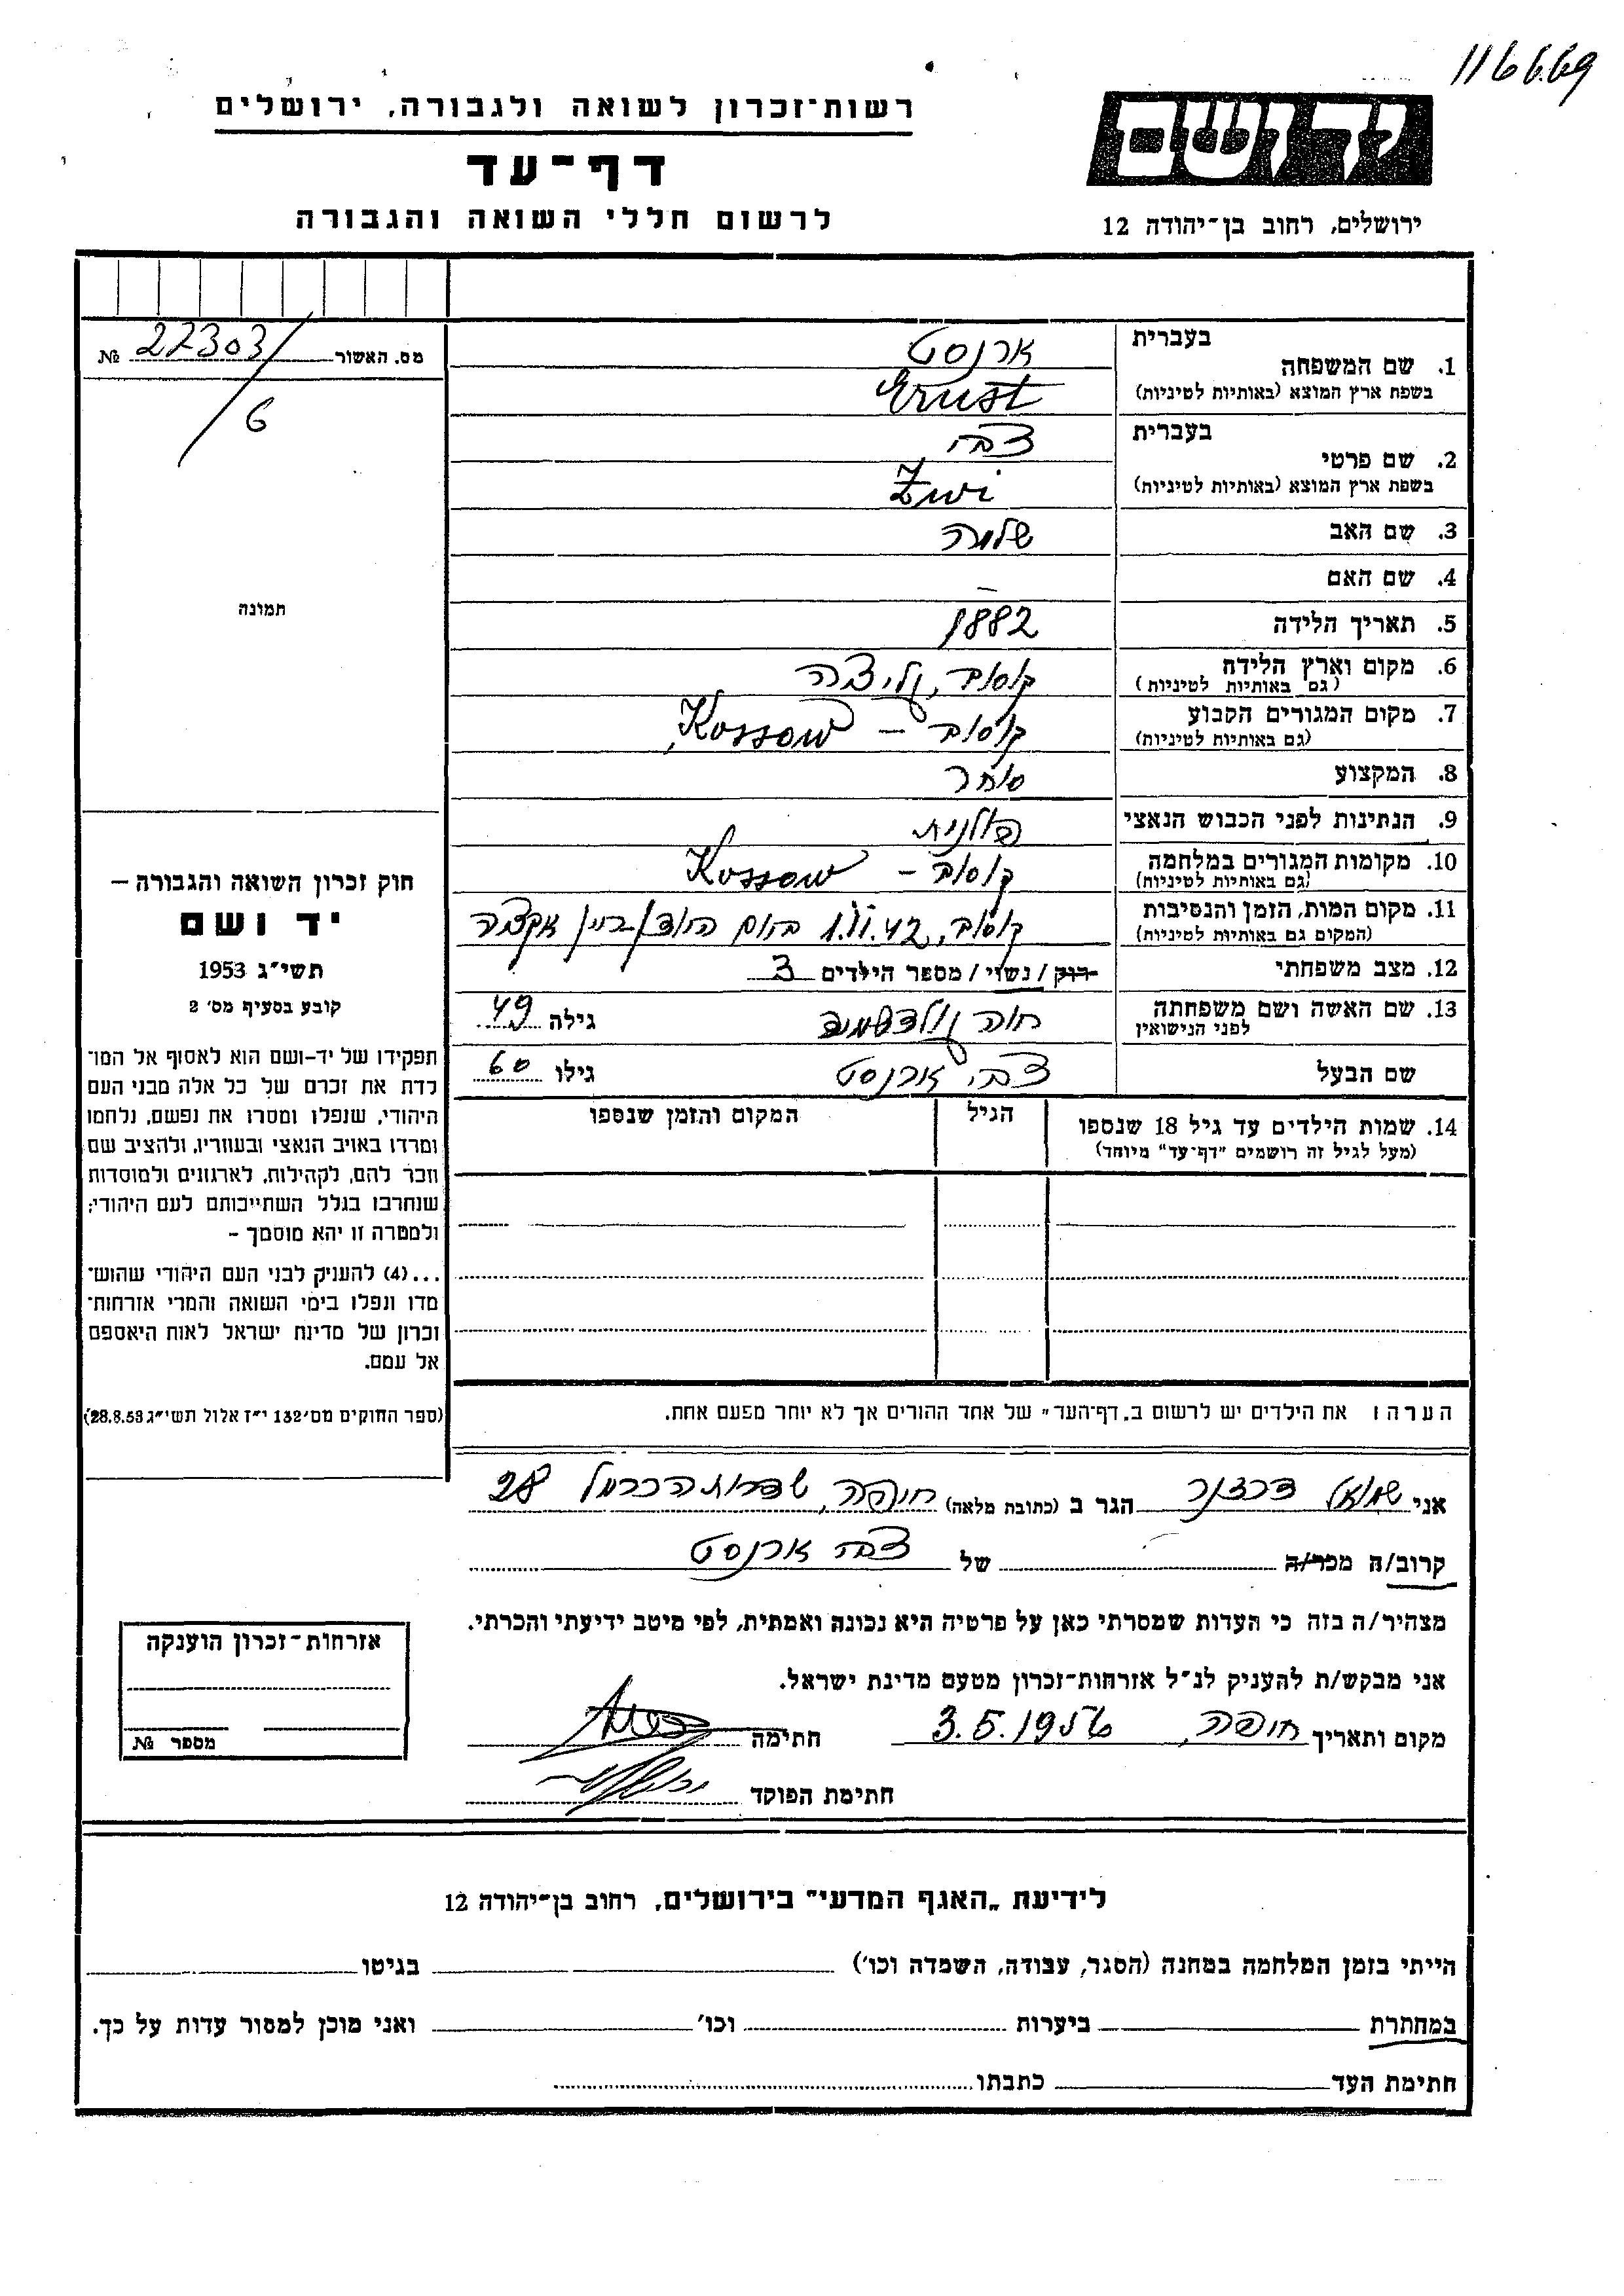 116669
רשות־זכרון לשואה ולגבורה, ירושלים
דף־עד
לרשום חללי השואה והגבורה
יד ושם
ירושלים, רחוב בן־יהודה 12
מס. האשור 27303 №
6
תמונה
1. שם המשפחה
בעברית ארנסט
בשפת ארץ המוצא (באותיות לטיניות) Ernst
2. שם פרטי
בעברית צבי
בשפת ארץ המוצא (באותיות לטיניות) Zwi
3. שם האב שלמה
4. שם האם –
5. תאריך הלידה 1882
6. מקום וארץ הלידה קוסוב, גליציה
(גם באותיות לטיניות)
7. מקום המגורים הקבוע קוסוב – Kossow
(גם באותיות לטיניות)
8. המקצוע סוחר
9. הנתינות לפני הכבוש הנאצי פולנית
10. מקומות המגורים במלחמה קוסוב – Kossow
(גם באותיות לטיניות)
11. מקום המות, הזמן והנסיבות קוסוב, אקציה
(המקום גם באותיות לטיניות)
12. מצב משפחתי רוק / נשוי / מספר הילדים 3
13. שם האשה ושם משפחתה חוה גולדשמיד גילה 49
לפני הנישואין
שם הבעל צבי ארנסט גילו 60
14. שמות הילדים עד גיל 18 שנספו הגיל המקום והזמן שנספו
(מעל לגיל זה רושמים "דף־עד" מיוחד)
הערה: את הילדים יש לרשום ב„דף־העד" של אחד ההורים אך לא יותר מפעם אחת.
חוק זכרון השואה והגבורה –
יד ושם
תשי״ג 1953
קובע בסעיף מס׳ 2
תפקידו של יד-ושם הוא לאסוף אל המו־
לדת את זכרם של כל אלה מבני העם
היהודי, שנפלו ומסרו את נפשם, נלחמו
ומרדו באויב הנאצי ובעוזריו, ולהציב שם
וזכר להם, לקהילות, לארגונים ולמוסדות
שנחרבו בגלל השתייכותם לעם היהודי;
ולמטרה זו יהא מוסמך –
...(4) להעניק לבני העם היהודי שהוש־
מדו ונפלו בימי השואה והמרי אזרחות־
זכרון של מדינת ישראל לאות היאספם
אל עמם.
(ספר החוקים מס׳ 132 י״ז אלול תשי״ג 28.8.53)
אני שמואל הגר ב (כתובת מלאה) חיפה, שדרות הכרמל 28
קרוב/ה מכר/ה של צבי ארנסט
מצהיר/ה בזה כי העדות שמסרתי כאן על פרטיה היא נכונה ואמתית, לפי מיטב ידיעתי והכרתי.
אני מבקש/ת להעניק לנ״ל אזרחות־זכרון מטעם מדינת ישראל.
מקום ותאריך חיפה, 3.5.1956 חתימה
חתימת הפוקד
אזרחות־זכרון הוענקה
מספר №
לידיעת „האגף המדעי" בירושלים, רחוב בן־יהודה 12
הייתי בזמן המלחמה במחנה (הסגר, עבודה, השמדה וכו׳) בגיטו
במחתרת ביערות וכו׳ ואני מוכן למסור עדות על כך.
חתימת העד כתבתו